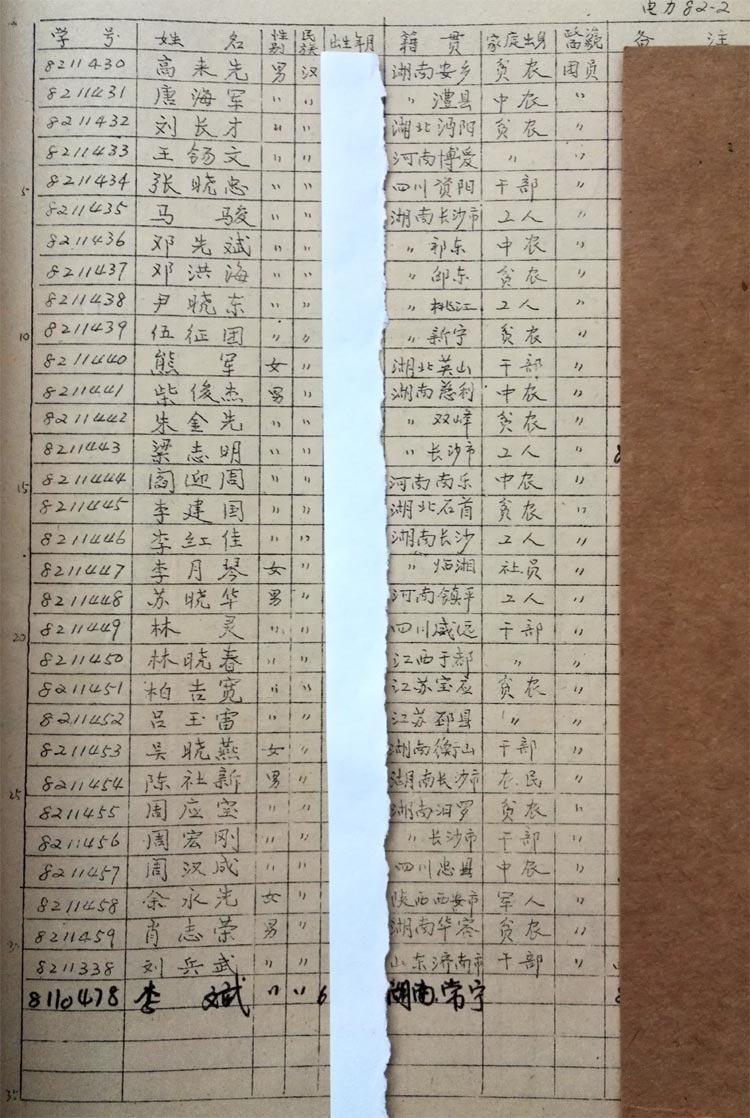 电力82-2
学号 姓名 性别 民族 出生年月 籍贯 家庭出身 政治面貌 备注
8211430 高来先 男 汉 湖南安乡 贫农 团员
8211431 唐海军 〃 〃 〃 澧县 中农 〃
8211432 刘长才 〃 〃 湖北沔阳 贫农 〃
8211433 王锡文 〃 〃 河南博爱 〃 〃
5 8211434 张晓忠 〃 〃 四川资阳 干部 〃
8211435 马骏 〃 〃 湖南长沙市 工人 〃
8211436 邓先斌 〃 〃 〃 祁东 中农 〃
8211437 邓洪海 〃 〃 〃 邵东 贫农 〃
8211438 尹晓东 〃 〃 〃 桃江 工人 〃
10 8211439 伍征团 〃 〃 〃 新宁 贫农 〃
8211440 熊军 女 〃 湖北英山 干部 〃
8211441 柴俊杰 男 〃 湖南慈利 中农 〃
8211442 朱金先 〃 〃 〃 双峰 贫农 〃
8211443 梁志明 〃 〃 〃 长沙市 工人 〃
15 8211444 阎迎周 〃 〃 河南南乐 中农 〃
8211445 李建国 〃 〃 湖北石首 贫农 〃
8211446 李红佳 〃 〃 湖南长沙 工人 〃
8211447 李月琴 女 〃 〃 临湘 社员 〃
8211448 苏晓华 男 〃 河南镇平 工人 〃
20 8211449 林灵 〃 〃 四川威远 干部 〃
8211450 林晓春 〃 〃 江西于都 〃 〃
8211451 柏吉宽 〃 〃 江苏宝应 贫农 〃
8211452 吕玉雷 〃 〃 江苏邳县 〃 〃
8211453 吴晓燕 女 〃 湖南衡山 干部 〃
25 8211454 陈社新 男 〃 湖南长沙市 农民 〃
8211455 周应宝 〃 〃 湖南汨罗 贫农 〃
8211456 周宏刚 〃 〃 〃 长沙市 干部 〃
8211457 周汉成 〃 〃 四川忠县 中农 〃
8211458 余永先 女 〃 陕西西安市 军人 〃
30 8211459 肖志荣 男 〃 湖南华容 贫农 〃
8211338 刘兵武 〃 〃 山东济南市 干部 〃
8110478 李斌 〃 〃 6 湖南常宁
35